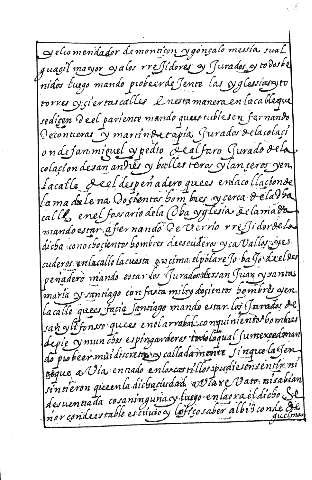 y el comendador de montizon y gonzalo messia su al
guazil mayor y a los rregidores y Jurados y todos be
nidos luego mando probeer de Jente las yglessias y to
torres y ciertas calles En esta manera en la calle que
se dize de el pariente mando que estubiesen fernando
De contreras y martin de tapia Jurados de la colaci
on de san miguel y pedro de alfaro Jurado de la
colacion de san andres y ballesteros y lanceros y en
la calle de el despeñadero que es en la collacion de
la madalena Docientos hombres y cerca de la dha
calle en el fossario de la dha yglesia de la mada
mando estar a fernando De berrio rregidor de la
dicha con docientos hombres de escuderos y cavallos y es
cuderos en la calle la cuesta
peñadero mando estar los Jurados de san Juan y santa
maria y santiago con fasta mil y docientos hombres y en
la calle que es fazia santiago mando estar los Jurados de
san yllefonso que es en el arrabal con quinientos hombres
de pie y muchos espingarderos
do probeer mui discreta y calladamente sin que la Jen
te que avia en
sintieron que en la dicha ciudad
desventurada cosa ninguna y luego en la ora el dicho Se
ñor condestable escrivio y fizo saber al bizconde de
guzman